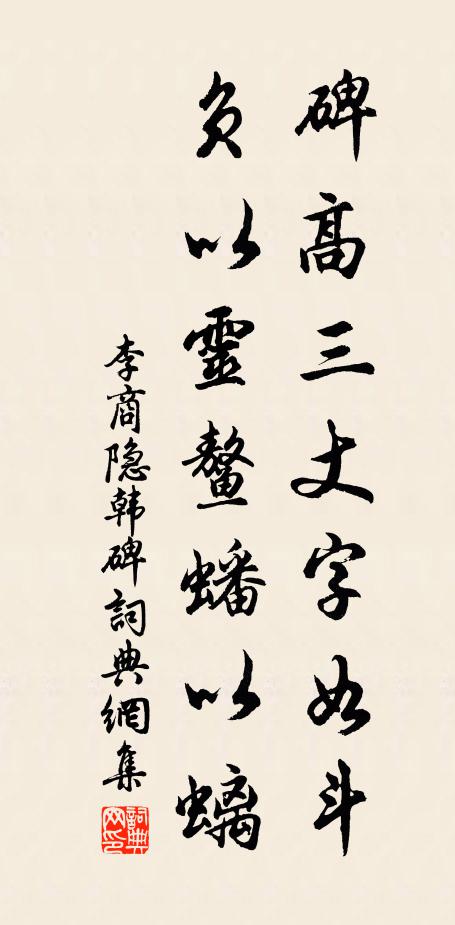 碑高三丈字如斗
负以靈鳌蟠以螭
李商隐韩碑詞典網集
詞典網印